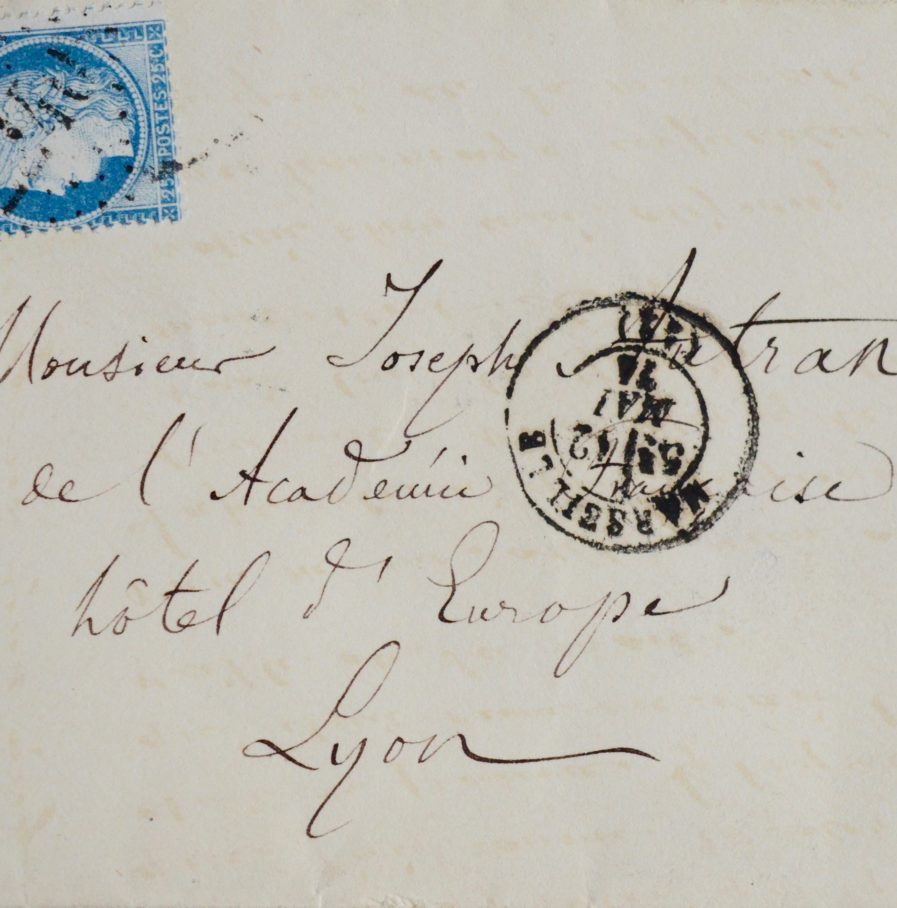 POSTES 25 C
25
Monsieur Joseph Autran
de l'Académie française
hôtel d'Europe
Lyon
MARSEILLE
12
MAI